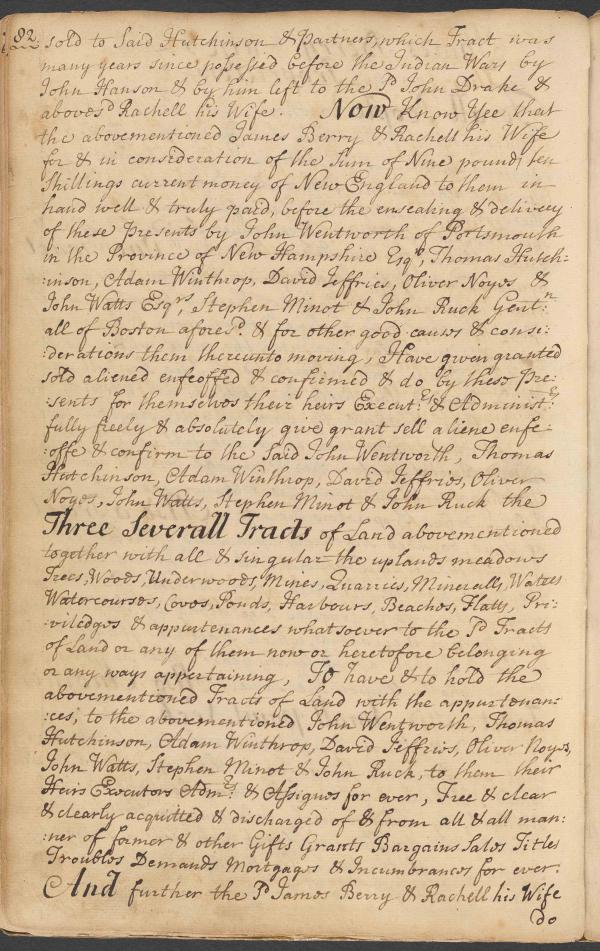 82.
sold to Said Hutchinson & Partners, which Tract was
many years since possessed before the Indian Wars by
John Hanson & by him left to the sd. John Drake &
abovesd. Rachell his Wife. Now Know Yee that
the abovementioned James Berry & Rachell his Wife
for & in consideration of the Sum of Nine pounds ten
Shillings current money of New England to them in
hand well & truly paid, before the ensealing & delivery
of these Presents by John Wentworth of Portsmouth
in the Province of New Hampshire Esqr., Thomas Hutch=
=inson, Adam Winthrop, David Jeffries, Oliver Noyes &
John Watts Esqrs., Stephen Minot & John Ruck Gentn:
all of Boston aforesd. & for other good causes & consi:
:derations them thereunto moving, Have given granted
sold aliened enfeoffed & confirmed & do by these Pre:
:sents for themselves their heirs Executrs. & Administrs:
fully freely & absolutely give grant sell aliene enfe:
:offe & confirm to the Said John Wentworth, Thomas
Hutchinson, Adam Winthrop, David Jeffries, Oliver
Noyes, John Watts, Stephen Minot & John Ruck the
Three Severall Tracts of Land abovementioned
together with all & singular the uplands meadows
Trees, Woods, Underwoods, Mines, Quarries, Mineralls, Waters
Watercourses, Coves, Ponds, Harbours, Beaches, Flatts, Pri:
:viledges & appurtenances whatsoever to the sd. Tracts
of Land or any of them now or heretofore belonging
or any ways appertaining, To have & to hold the
abovementioned Tracts of Land with the appurtenan:
:ces, to the abovementioned John Wentworth, Thomas
Hutchinson, Adam Winthrop, David Jeffries, Oliver Noyes,
John Watts, Stephen Minot & John Ruck, to them their
Heirs Executors Admrs: & Assignes for ever, Free & clear
& clearly acquitted & discharged of & from all & all man:
:ner of former & other Gifts Grants Bargains Sales Titles
Troubles Demands Mortgages & Incumbrances for ever.
And further the sd. James Berry & Rachell his Wife
do